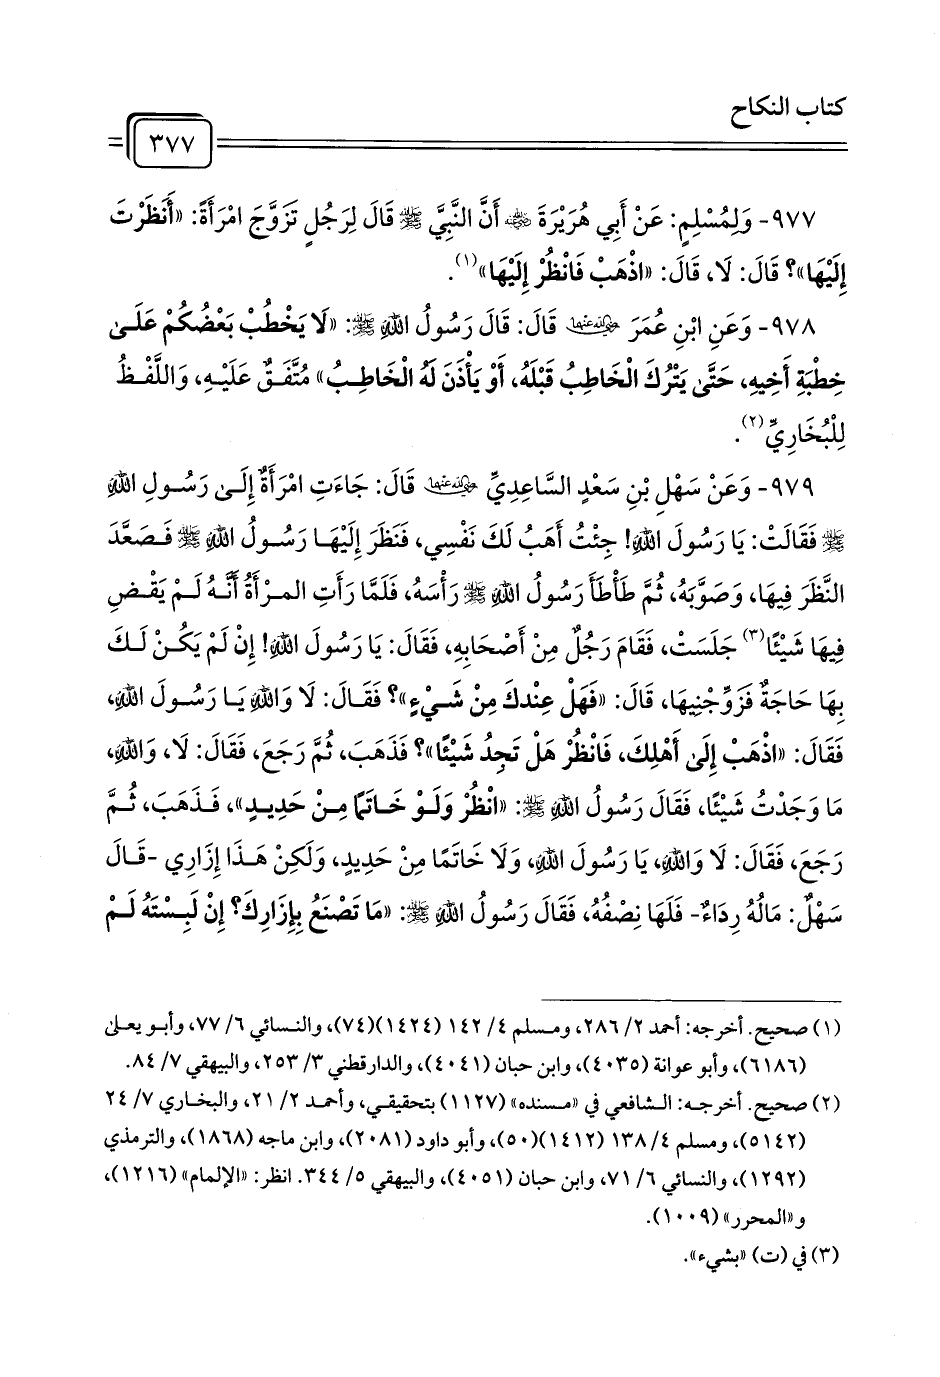 كتاب النكاح
٣٧٧
٩٧٧- وَلِمُسْلِمٍ: عَنْ أَبِي هُرَيْرَةَ رضي الله عنه أَنَّ النَّبِيَّ ﷺ قَالَ لِرَجُلٍ تَزَوَّجَ امْرَأَةً: «أَنَظَرْتَ
إِلَيْهَا»؟ قَالَ: لَا، قَالَ: «اذْهَبْ فَانْظُرْ إِلَيْهَا»(١).
٩٧٨- وَعَنِ ابْنِ عُمَرَ رضي الله عنهما قَالَ: قَالَ رَسُولُ اللهِ ﷺ: «لَا يَخْطُبْ بَعْضُكُمْ عَلَىٰ
خِطْبَةِ أَخِيهِ، حَتَّى يَتْرُكَ الْخَاطِبُ قَبْلَهُ، أَوْ يَأْذَنَ لَهُ الْخَاطِبُ» مُتَّفَقٌ عَلَيْهِ، وَاللَّفْظُ
لِلْبُخَارِيِّ(٢).
٩٧٩- وَعَنْ سَهْلِ بْنِ سَعْدٍ السَّاعِدِيِّ رضي الله عنهما قَالَ: جَاءَتِ امْرَأَةٌ إِلَىٰ رَسُولِ اللهِ
ﷺ فَقَالَتْ: يَا رَسُولَ اللهِ! جِئْتُ أَهَبُ لَكَ نَفْسِي، فَنَظَرَ إِلَيْهَا رَسُولُ اللهِ ﷺ فَصَعَّدَ
النَّظَرَ فِيهَا، وَصَوَّبَهُ، ثُمَّ طَأْطَأَ رَسُولُ اللهِ ﷺ رَأْسَهُ، فَلَمَّا رَأَتِ المرْأَةُ أَنَّهُ لَمْ يَقْضِ
فِيهَا شَيْئًا(٣) جَلَسَتْ، فَقَامَ رَجُلٌ مِنْ أَصْحَابِهِ، فَقَالَ: يَا رَسُولَ اللهِ! إِنْ لَمْ يَكُنْ لَكَ
بِهَا حَاجَةٌ فَزَوِّجْنِيهَا، قَالَ: «فَهَلْ عِنْدكَ مِنْ شَيْءٍ»؟ فَقَالَ: لَا وَاللهِ يَا رَسُولَ اللهِ،
فَقَالَ: «اذْهَبْ إِلَىٰ أَهْلِكَ، فَانْظُرْ هَلْ تَجِدُ شَيْئًا»؟ فَذَهَبَ، ثُمَّ رَجَعَ، فَقَالَ: لَا، وَاللهِ،
مَا وَجَدْتُ شَيْئًا، فَقَالَ رَسُولُ اللهِ ﷺ: «انْظُرْ وَلَوْ خَاتَمًا مِنْ حَدِيدٍ»، فَذَهَبَ، ثُمَّ
رَجَعَ، فَقَالَ: لَا وَاللهِ، يَا رَسُولَ اللهِ، وَلَا خَاتَمًا مِنْ حَدِيدٍ، وَلَكِنْ هَذَا إِزَارِي -قَالَ
سَهْلٌ: مَالُهُ رِدَاءٌ- فَلَهَا نِصْفُهُ، فَقَالَ رَسُولُ اللهِ ﷺ: «مَا تَصْنَعُ بِإِزَارِكَ؟ إِنْ لَبِسْتَهُ لَمْ
(١) صحيح. أخرجه: أحمد ٢/ ٢٨٦، ومسلم ٤/ ١٤٢ (١٤٢٤)(٧٤)، والنسائي ٦/ ٧٧، وأبو يعلى
(٦١٨٦)، وأبو عوانة (٤٠٣٥)، وابن حبان (٤٠٤١)، والدارقطني ٣/ ٢٥٣، والبيهقي ٧/ ٨٤.
(٢) صحيح. أخرجه: الشافعي في «مسنده» (١١٢٧) بتحقيقي، وأحمد ٢/ ٢١، والبخاري ٧/ ٢٤
(٥١٤٢)، ومسلم ٤/ ١٣٨ (١٤١٢)(٥٠)، وأبو داود (٢٠٨١)، وابن ماجه (١٨٦٨)، والترمذي
(١٢٩٢)، والنسائي ٦/ ٧١، وابن حبان (٤٠٥١)، والبيهقي ٥/ ٣٤٤. انظر: «الإلمام» (١٢١٦)،
و«المحرر» (١٠٠٩).
(٣) في (ت) «بشيء».